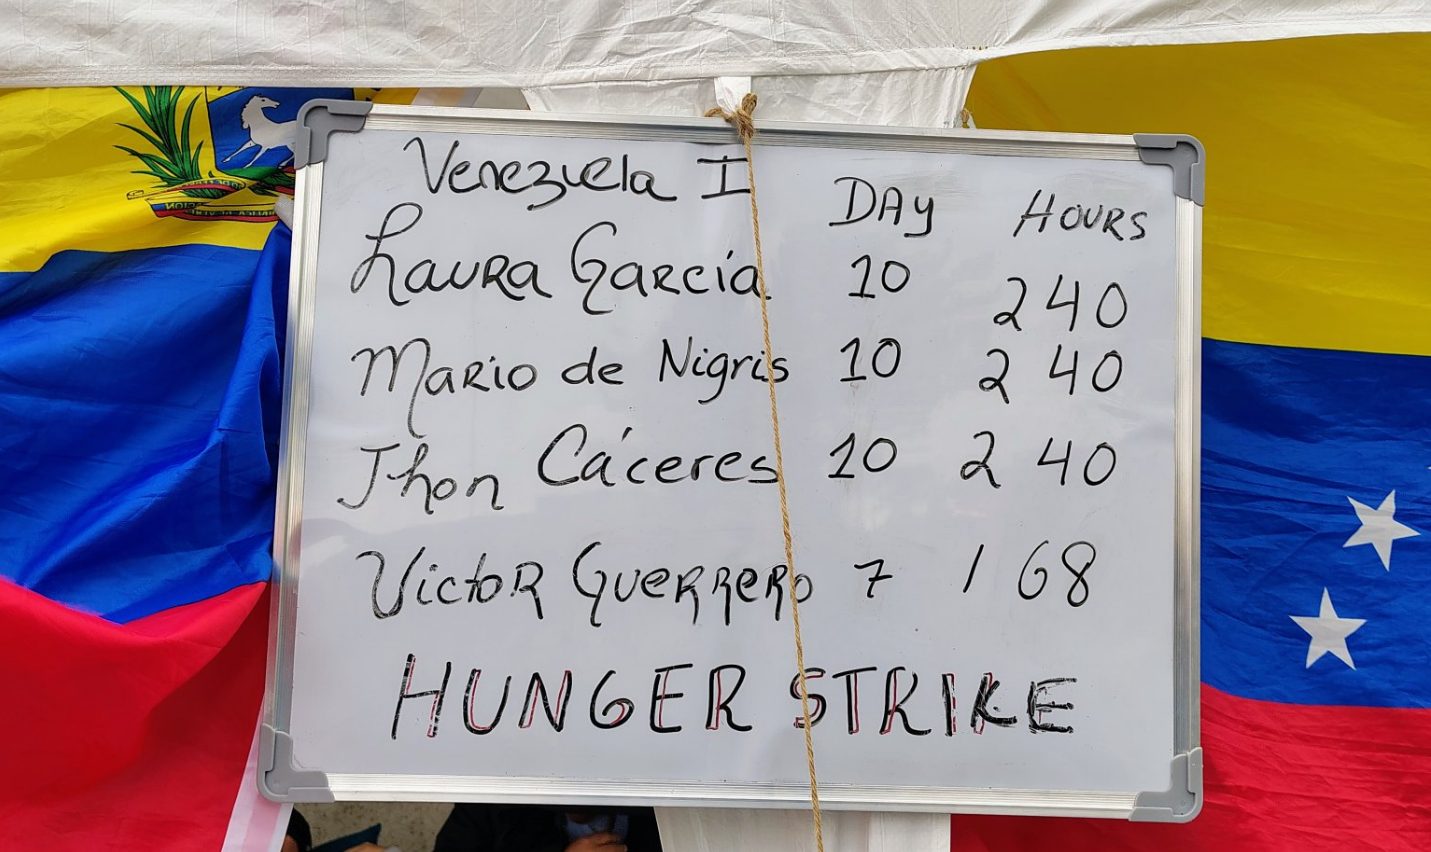 Venezuela I DAY HOURS
Laura García 10 240
Mario de Nigris 10 240
Jhon Cáceres 10 240
Victor Guerrero 7 168
HUNGER STRIKE